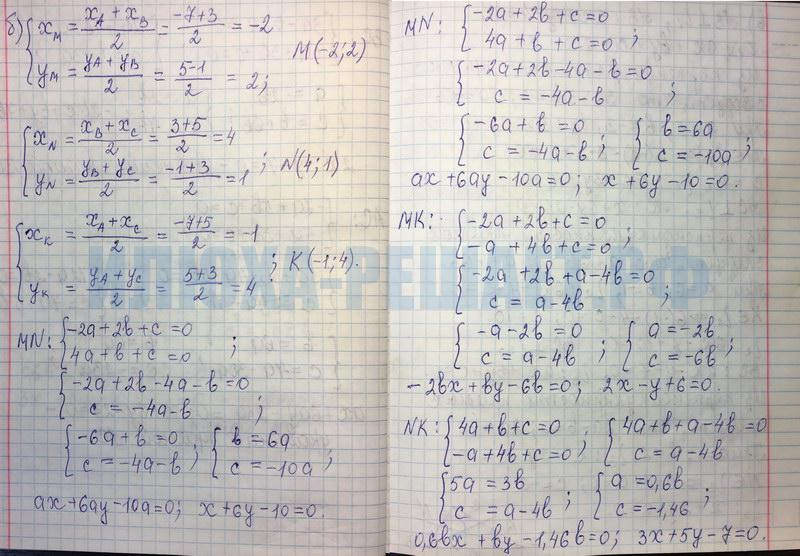 б) { x_M = (x_A + x_B)/2 = (-7+3)/2 = -2
y_M = (y_A + y_B)/2 = (5-1)/2 = 2; M(-2;2)
{ x_N = (x_B + x_C)/2 = (3+5)/2 = 4
y_N = (y_B + y_C)/2 = (-1+3)/2 = 1 ; N(4;1)
{ x_K = (x_A + x_C)/2 = (-7+5)/2 = -1
y_K = (y_A + y_C)/2 = (5+3)/2 = 4 ; K(-1;4).
MN: { -2a+2b+c=0
4a+b+c=0 ;
{ -2a+2b-4a-b=0
c=-4a-b ;
{ -6a+b=0 { b=6a
c=-4a-b ; c=-10a ;
ax+6ay-10a=0; x+6y-10=0.
MN: { -2a+2b+c=0
4a+b+c=0 ;
{ -2a+2b-4a-b=0
c=-4a-b ;
{ -6a+b=0 { b=6a
c=-4a-b ; c=-10a ;
ax+6ay-10a=0; x+6y-10=0.
MK: { -2a+2b+c=0
-a+4b+c=0 ;
{ -2a+2b+a-4b=0
c=a-4b ;
{ -a-2b=0 { a=-2b
c=a-4b ; c=-6b ;
-2bx+by-6b=0; 2x-y+6=0.
NK: { 4a+b+c=0 { 4a+b+a-4b=0
-a+4b+c=0 ; c=a-4b
{ 5a=3b { a=0,6b
c=a-4b ; c=-1,4b ;
0,6bx+by-1,4b b=0; 3x+5y-7=0.
ИЛЮХА-РЕШАЕТ.РФ